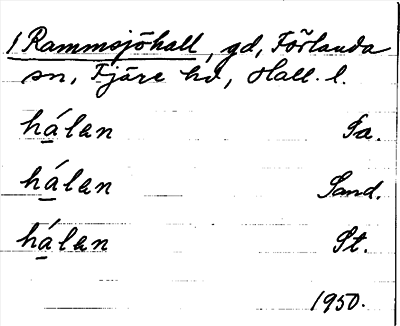 1 Rammsjöhall, gd, Förlanda
sn, Fjäre hd, Hall. l.
hálan Fa.
hálan Sand.
hálan St.
1950.